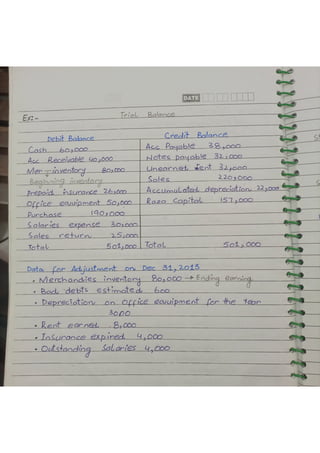 DATE
Ex:-
Trial Balance
Debit Balance
Credit Balance
Cash 60,000
Acc Payable 38,000
Acc Receivable 40,000
Notes payable 32,000
Mer-inventory 80,000
Unearned rent 32,000
Beginning inventory
Sales 220,000
Prepaid insurance 26,000
Accumulated depreciation 22,000
Office equipment 50,000
Raza Capital 157,000
Purchase 190,000
Salaries expense 30,000
Sales return 25,000
Total 501,000
Total 501,000
Data for Adjustment on Dec 31, 2015
• Merchandies inventory 80,000 → Ending earning
• Bad debits estimated 600
• Depreciation on office equipment for the Year
3000
• Rent earned 8,000
• Insurance expired 4,000
• Outstanding Salaries 4,000